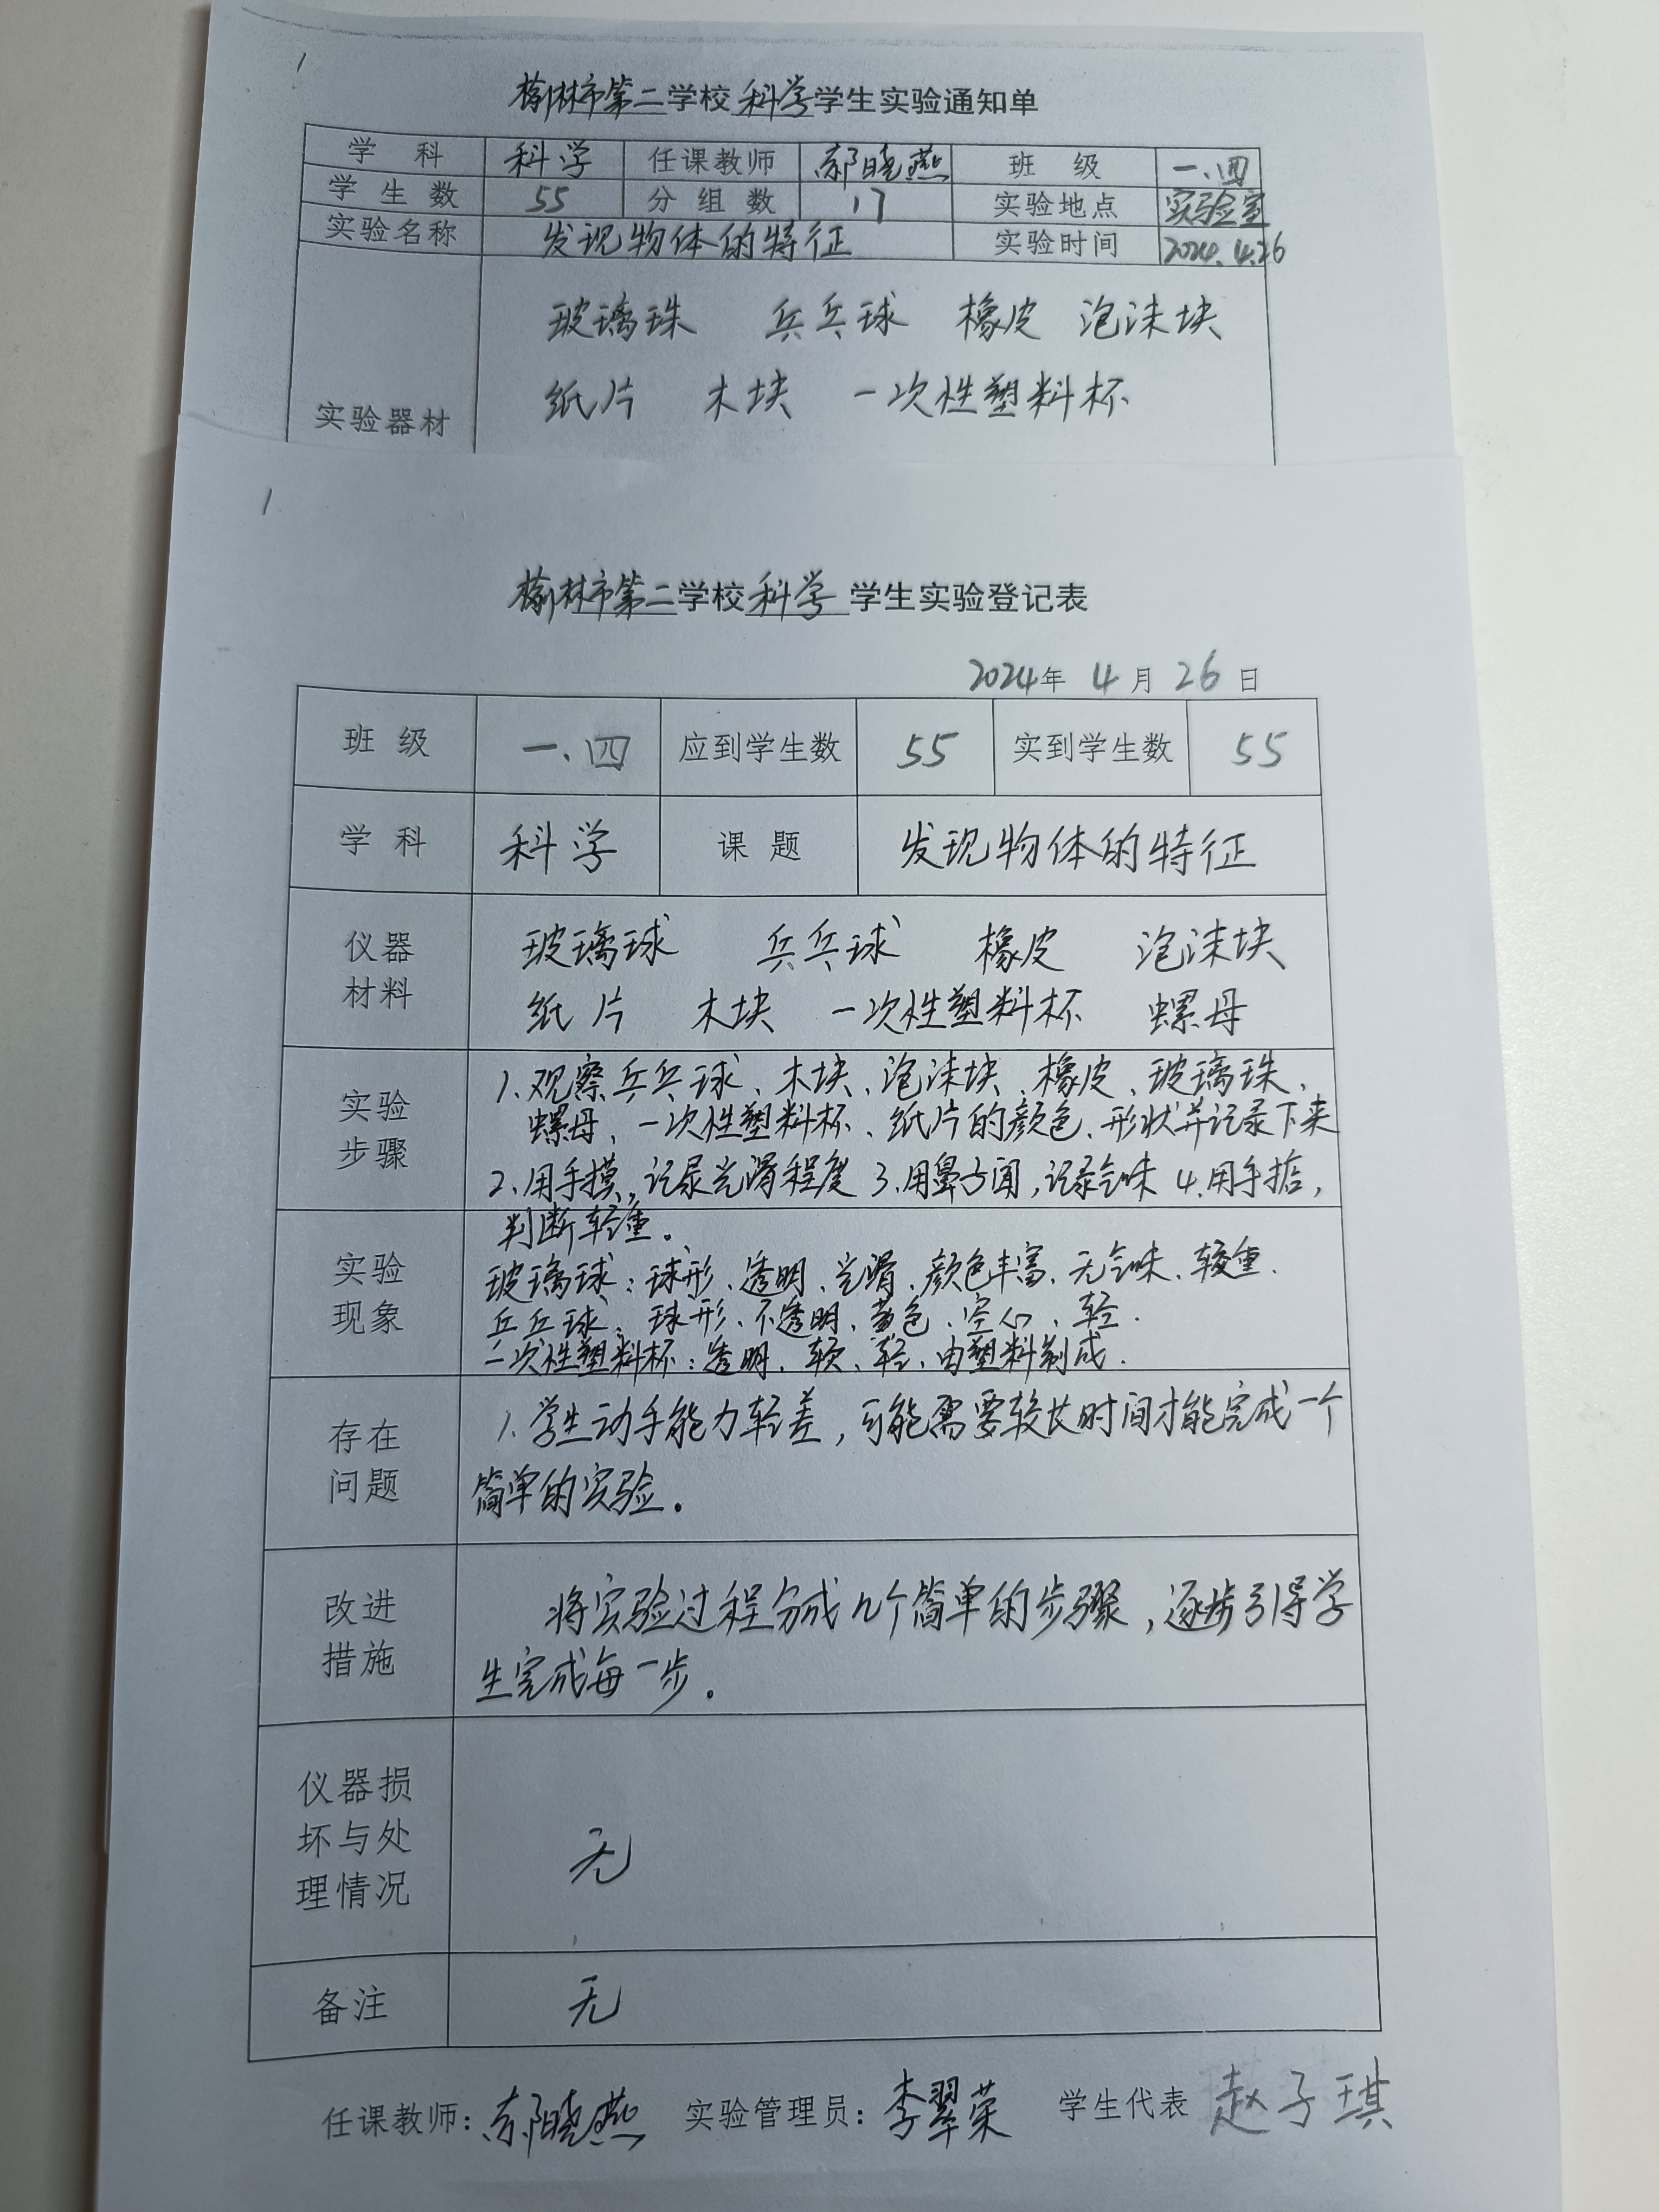 1
榆林市第二学校科学学生实验通知单
学 科 科学 任课教师 郝晓燕 班 级 一.四
学 生 数 55 分 组 数 17 实验地点 实验室
实验名称 发现物体的特征 实验时间 2024.4.26
实验器材
玻璃珠 乒乓球 橡皮 泡沫块
纸片 木块 一次性塑料杯
1
榆林市第二学校科学 学生实验登记表
2024年 4 月 26 日
班 级 一.四 应到学生数 55 实到学生数 55
学 科 科学 课 题 发现物体的特征
仪器
材料
玻璃球 乒乓球 橡皮 泡沫块
纸片 木块 一次性塑料杯 螺母
实验
步骤
1.观察乒乓球、木块、泡沫块、橡皮、玻璃珠、
螺母、一次性塑料杯、纸片的颜色、形状并记录下来
2.用手摸,记录光滑程度 3.用鼻子闻,记录气味 4.用手掂,
判断轻重。
实验
现象
玻璃球:球形、透明、光滑、颜色丰富、无气味、较重.
乒乓球、球形、不透明、黄色、空心、轻.
一次性塑料杯:透明、软、轻、由塑料制成.
存在
问题
1.学生动手能力较差,可能需要较长时间才能完成一个
简单的实验。
改进
措施
将实验过程分成几个简单的步骤,逐步引导学
生完成每一步。
仪器损
坏与处
理情况
无
备注 无
任课教师:郝晓燕 实验管理员:李翠荣 学生代表 赵子琪